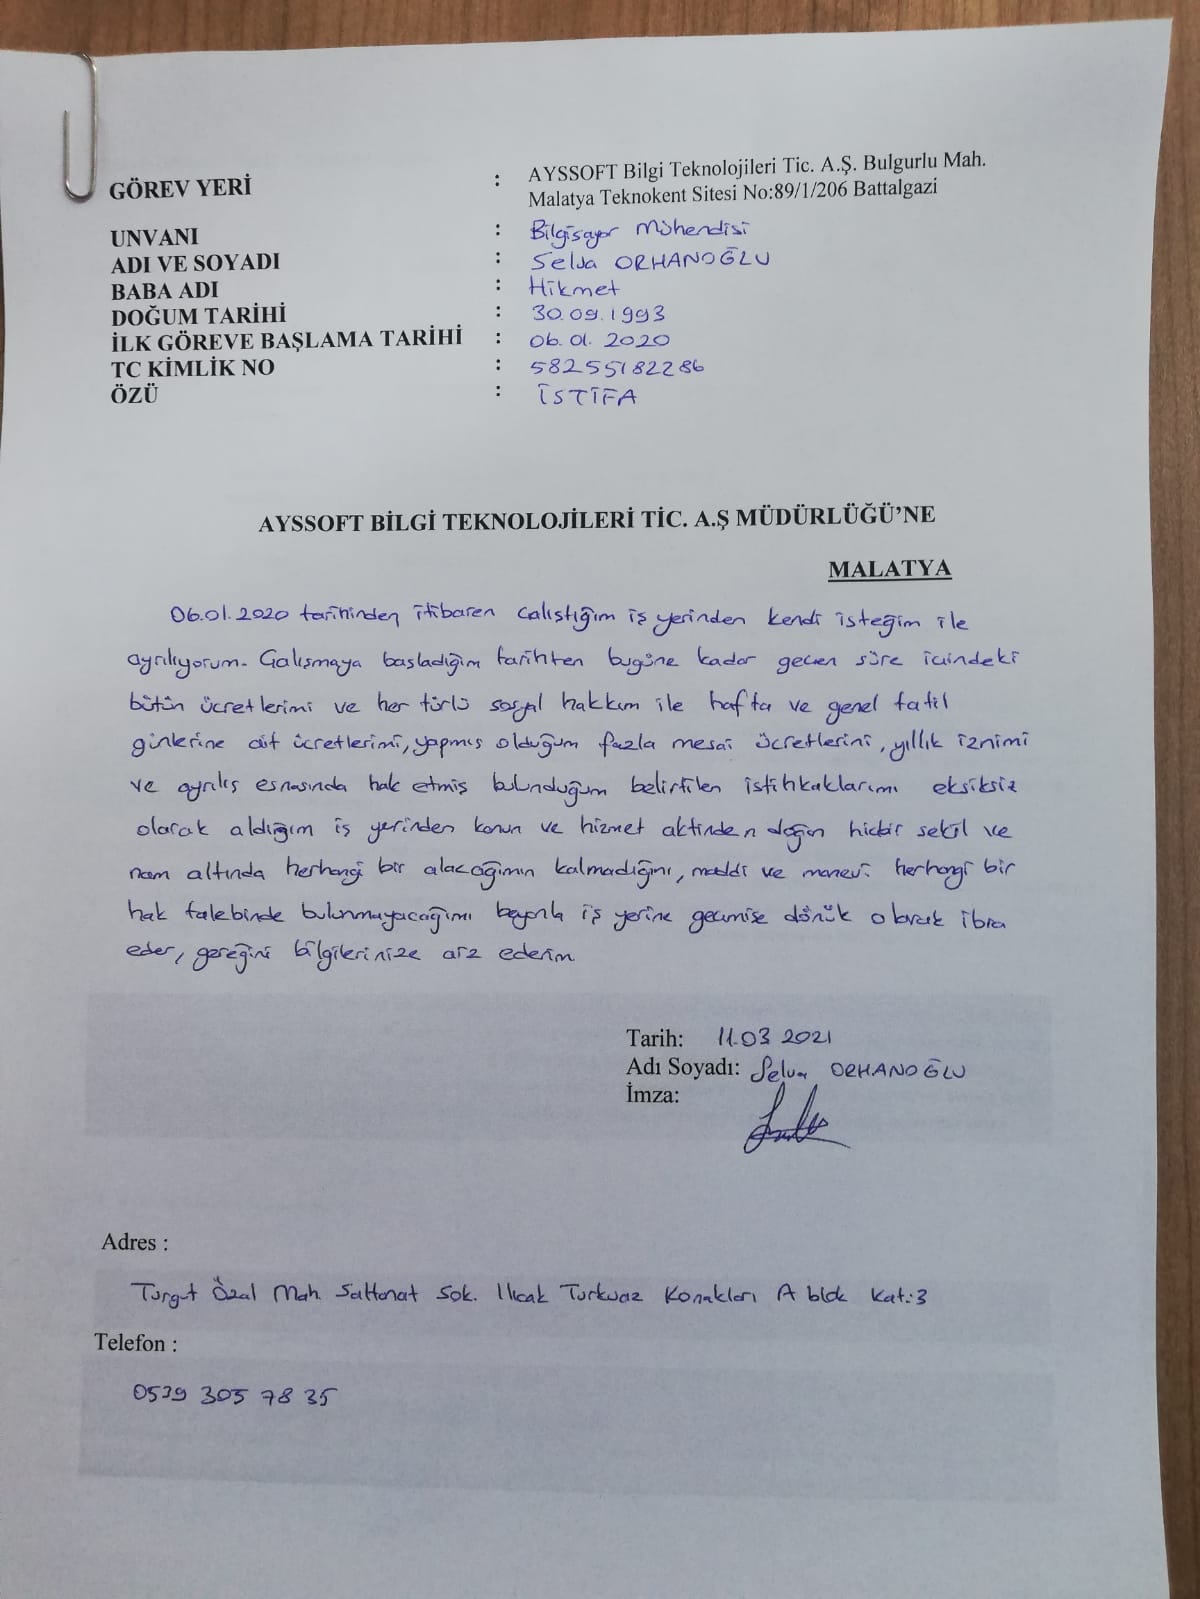 GÖREV YERİ : AYSSOFT Bilgi Teknolojileri Tic. A.Ş. Bulgurlu Mah.
Malatya Teknokent Sitesi No:89/1/206 Battalgazi
UNVANI : Bilgisayar Mühendisi
ADI VE SOYADI : Selva ORHANOĞLU
BABA ADI : Hikmet
DOĞUM TARİHİ : 30.09.1993
İLK GÖREVE BAŞLAMA TARİHİ : 06.01.2020
TC KİMLİK NO : 58255182286
ÖZÜ : İSTİFA
AYSSOFT BİLGİ TEKNOLOJİLERİ TİC. A.Ş MÜDÜRLÜĞÜ’NE
MALATYA
06.01.2020 tarihinden itibaren calıştığım iş yerinden kendi isteğim ile
ayrılıyorum. Calışmaya başladığım tarihten bugüne kadar geçen süre icindeki
bütün ücretlerimi ve her türlü sosyal hakkım ile hafta ve genel tatil
günlerine ait ücretlerimi, yapmış olduğum fazla mesai ücretlerini, yıllık iznimi
ve ayrılış esnasında hak etmiş bulunduğum belirtilen istihkaklarımı eksiksiz
olarak aldığım iş yerinden kanun ve hizmet aktinden doğan hicbir sekil ve
nam altında herhangi bir alacağımın kalmadığını, maddi ve manevi herhangi bir
hak talebinde bulunmayacağımı beyanla iş yerine gecmişe dönük olarak ibra
eder, gereğini bilgilerinize arz ederim
Tarih: 11.03 2021
Adı Soyadı: Selva ORHANOĞLU
İmza:
Adres :
Turgut Özal Mah. Saltanat Sok. Ilıcak Turkuaz Konakları A blok Kat:3
Telefon :
0539 305 78 35